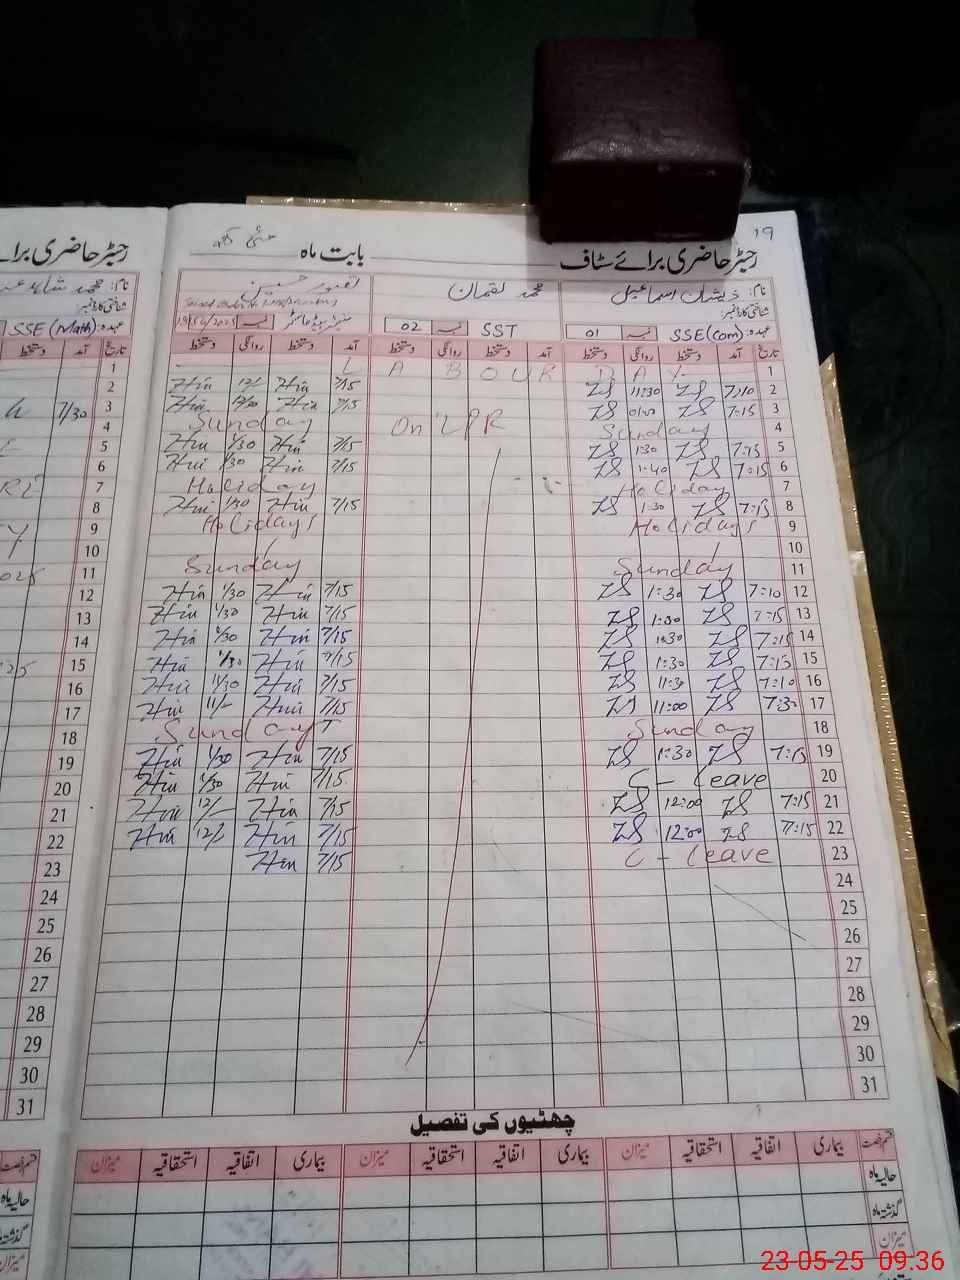 19
رجسٹر حاضری برائے سٹاف بابت ماہ مئی
رجسٹر حاضری برائے
نام: ذیشان اسماعیل محمد لقمان
نام: محمد شاہد
شناختی کارڈ نمبر:
شناختی کارڈ نمبر:
عہدہ: SSE (com) نمبر 01 SST نمبر 02 سینئر ہیڈ ماسٹر نمبر
عہدہ: SSE (Math)
تاریخ آمد دستخط روانگی دستخط آمد دستخط روانگی دستخط آمد دستخط روانگی دستخط
تاریخ آمد
1 L A B O U R D A Y
2 7:10 ZS 11:30 ZS 7/15 Hin 12/- Hin
3 7:15 ZS ZS 7/15 Hin Hin
3 7/30
4 Sunday On LPR Sunday
5 7:15 ZS 1:30 ZS 7/15 Hin 1/30 Hin
6 7:15 ZS 1:40 ZS 7/15 Hin 1/30 Hin
7 Holiday Holiday
8 7:15 ZS 1:30 ZS 7/15 Hin 1/30 Hin
9 Holidays Holidays
10
11 Sunday Sunday
12 7:10 ZS 1:30 ZS 7/15 Hin 1/30 Hin
13 7:15 ZS 1:30 ZS 7/15 Hin 1/30 Hin
14 7:15 ZS 1:30 ZS 7/15 Hin 1/30 Hin
15 7:15 ZS 1:30 ZS 7/15 Hin 1/30 Hin
16 7:10 ZS 11:30 ZS 7/15 Hin 11/30 Hin
17 7:30 ZS 11:00 ZS 7/15 Hin 11/- Hin
18 Sunday Sunday
19 7:15 ZS 1:30 ZS 7/15 Hin 1/30 Hin
20 C - Leave 7/15 Hin 1/30 Hin
21 7:15 ZS 12:00 ZS 7/15 Hin 12/- Hin
22 7:15 ZS 12:00 ZS 7/15 Hin 12/- Hin
23 C - Leave 7/15 Hin
24
25
26
27
28
29
30
31
چھٹیوں کی تفصیل
قسم رخصت بیماری اتفاقیہ استحقاقیہ میزان بیماری اتفاقیہ استحقاقیہ میزان بیماری اتفاقیہ استحقاقیہ میزان
حالیہ ماہ
گذشتہ ماہ
میزان
قسم رخصت
حالیہ ماہ
گذشتہ ماہ
میزان
23-05-25 09:36